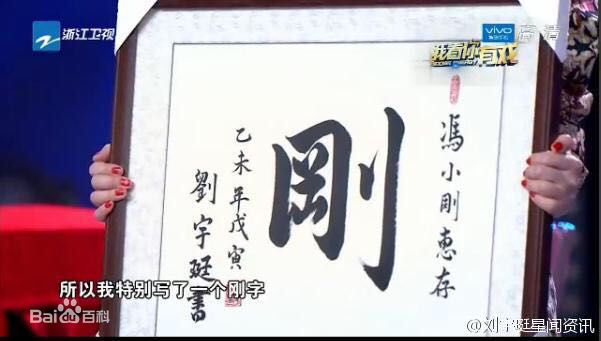 浙江卫视
vivo
智能手机
高清
我看你有戏
馮小剛惠存
剛
乙未年戊寅
劉宇珽書
所以我特别写了一个刚字
Baidu百科
@刘宇珽星闻资讯